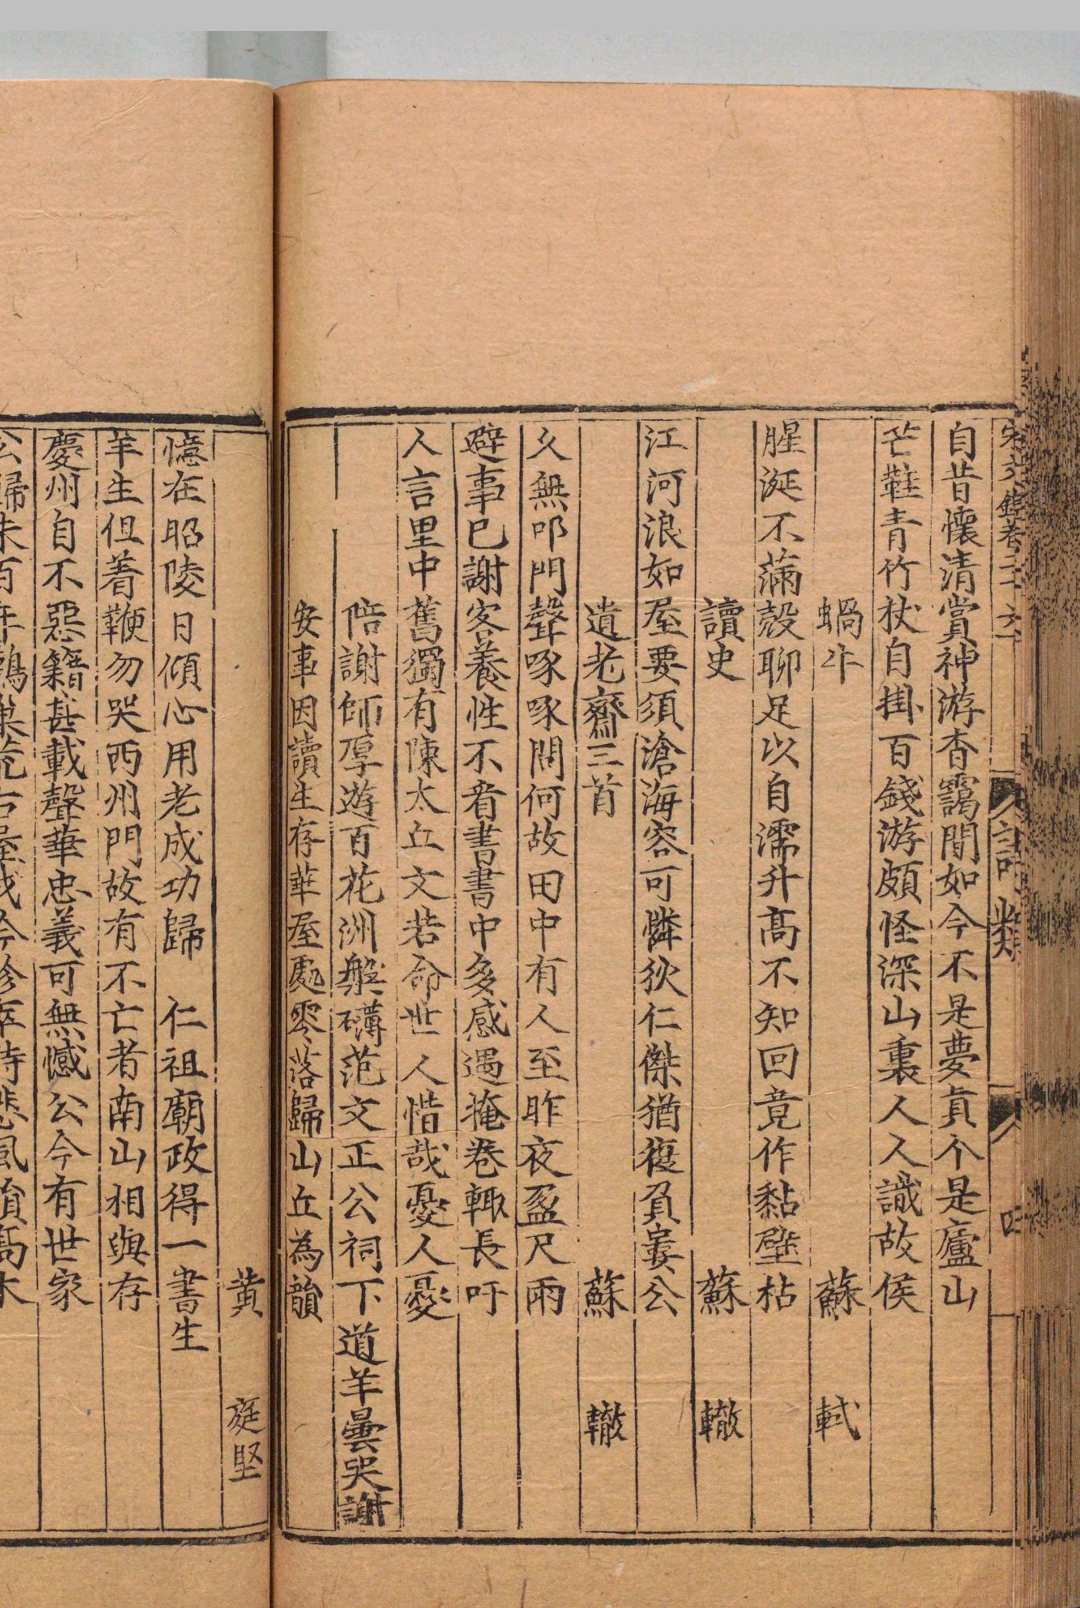 宋文鑑卷二十六
詩類
四
自昔懷清賞神游杳靄間如今不是夢真个是廬山
芒鞋青竹杖自掛百錢游頗怪深山裏人人識故侯
蝸牛 蘇軾
腥涎不滿殼聊足以自濡升高不知回竟作黏壁枯
讀史 蘇轍
江河浪如屋要須滄海容可憐狄仁傑猶複負婁公
遺老齋三首 蘇轍
久無叩門聲啄啄問何故田中有人至昨夜盈尺雨
避事已謝客養性不看書書中多感遇掩卷輒長吁
人言里中舊獨有陳太丘文若命世人惜哉憂人憂
陪謝師厚遊百花洲槃礴范文正公祠下道羊曇哭謝
安事因讀生存華屋處零落歸山丘為韻
黄庭堅
憶在昭陵日傾心用老成功歸 仁祖廟政得一書生
羊生但著鞭勿哭西州門故有不亡者南山相與存
慶州自不惡籍甚載聲華忠義可無憾公今有世家